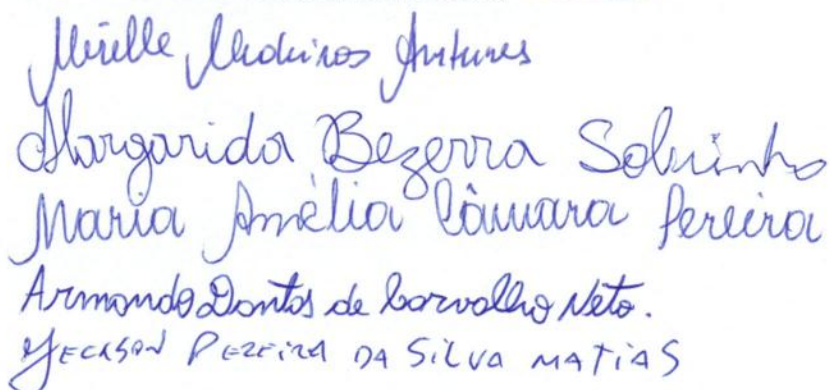 Mirelle Medeiros Antunes
Margarida Bezerra Sobrinho
Maria Amélia Câmara Pereira
Armando Dantas de Carvalho Neto.
Jeckson Pereira da Silva Matias